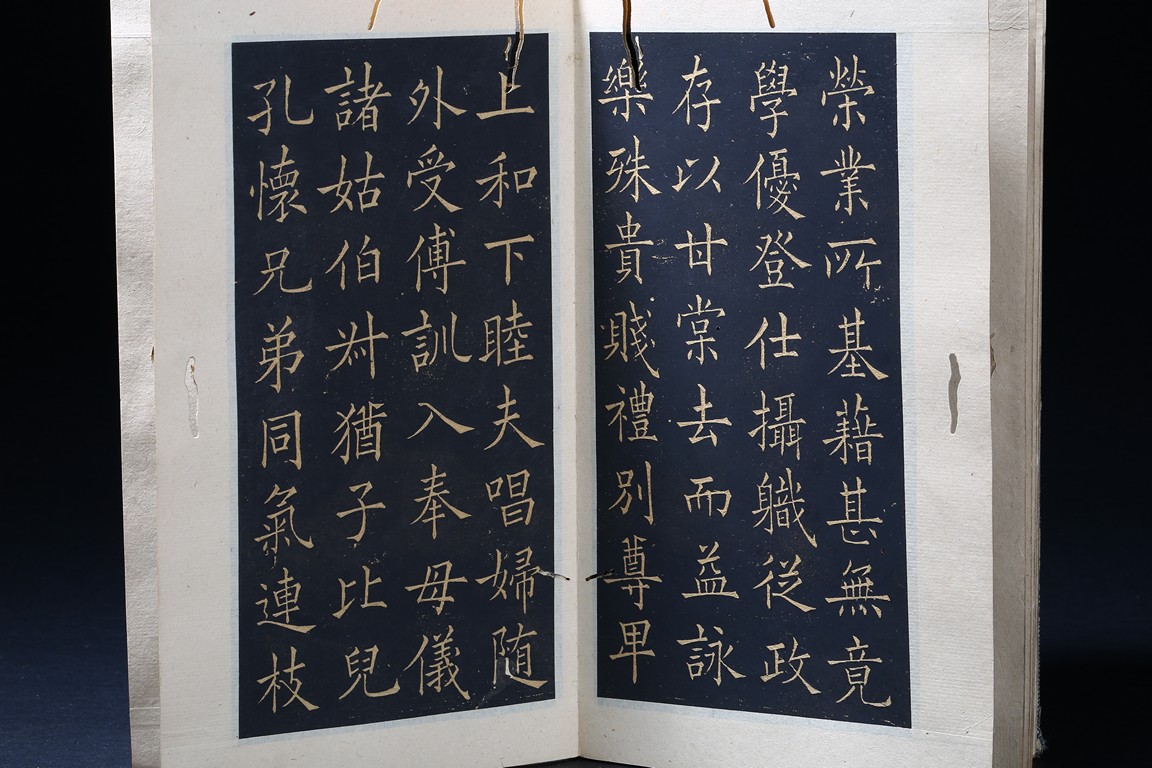 榮業所基藉甚無竟
學優登仕攝職從政
存以甘棠去而益詠
樂殊貴賤禮別尊卑
上和下睦夫唱婦随
外受傅訓入奉母儀
諸姑伯叔猶子比兒
孔懷兄弟同氣連枝